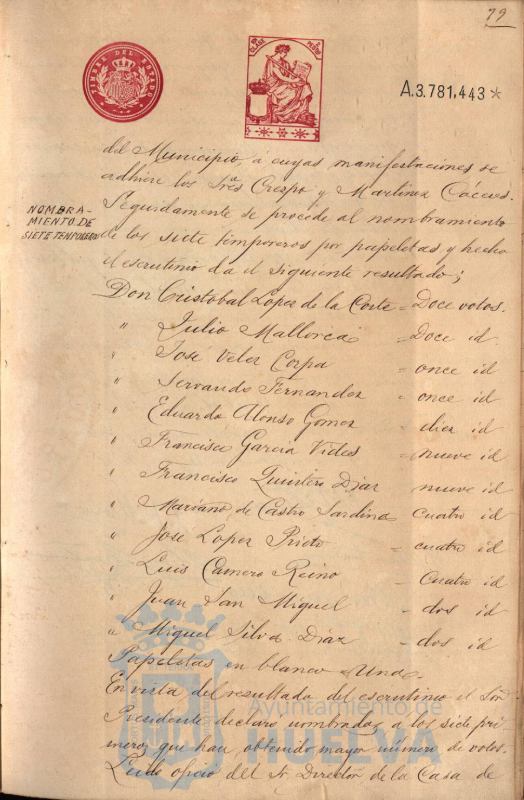 79
TIMBRE DEL ESTADO
A.3.781,443*
del Municipio, á cuyas manifestaciones se
adhiere los Sres Crespo y Martinez Cáceres.
NOMBRA-
MIENTO DE
SIETE TEMPOREROS
Seguidamente se procede al nombramiento
de los siete temporeros por papeletas y hecho
el escrutinio da el siguiente resultado;
Don Cristobal Lopez de la Corte = Doce votos.
" Julio Mallorca = Doce id.
" Jose Velez Corpa = once id
" Servando Fernandez = once id
" Eduardo Alonso Gomez = diez id
" Francisco Garcia Vides = nueve id
" Francisco Quintero Diaz nueve id
" Mariano de Castro Sardina Cuatro id
" Jose Lopez Prieto = cuatro id
" Luis Camero Reino = Cuatro id
" Juan San Miguel = dos id
" Miguel Silva Diaz = dos id
Papeletas en blanco Una.
En vista del resultado del escrutinio el Sor
Presidente declaro nombrados a los siete pri
meros que han obtenido mayor número de votos.
Leido oficio del Sr Director de la Casa de
Ayuntamiento de
HUELVA